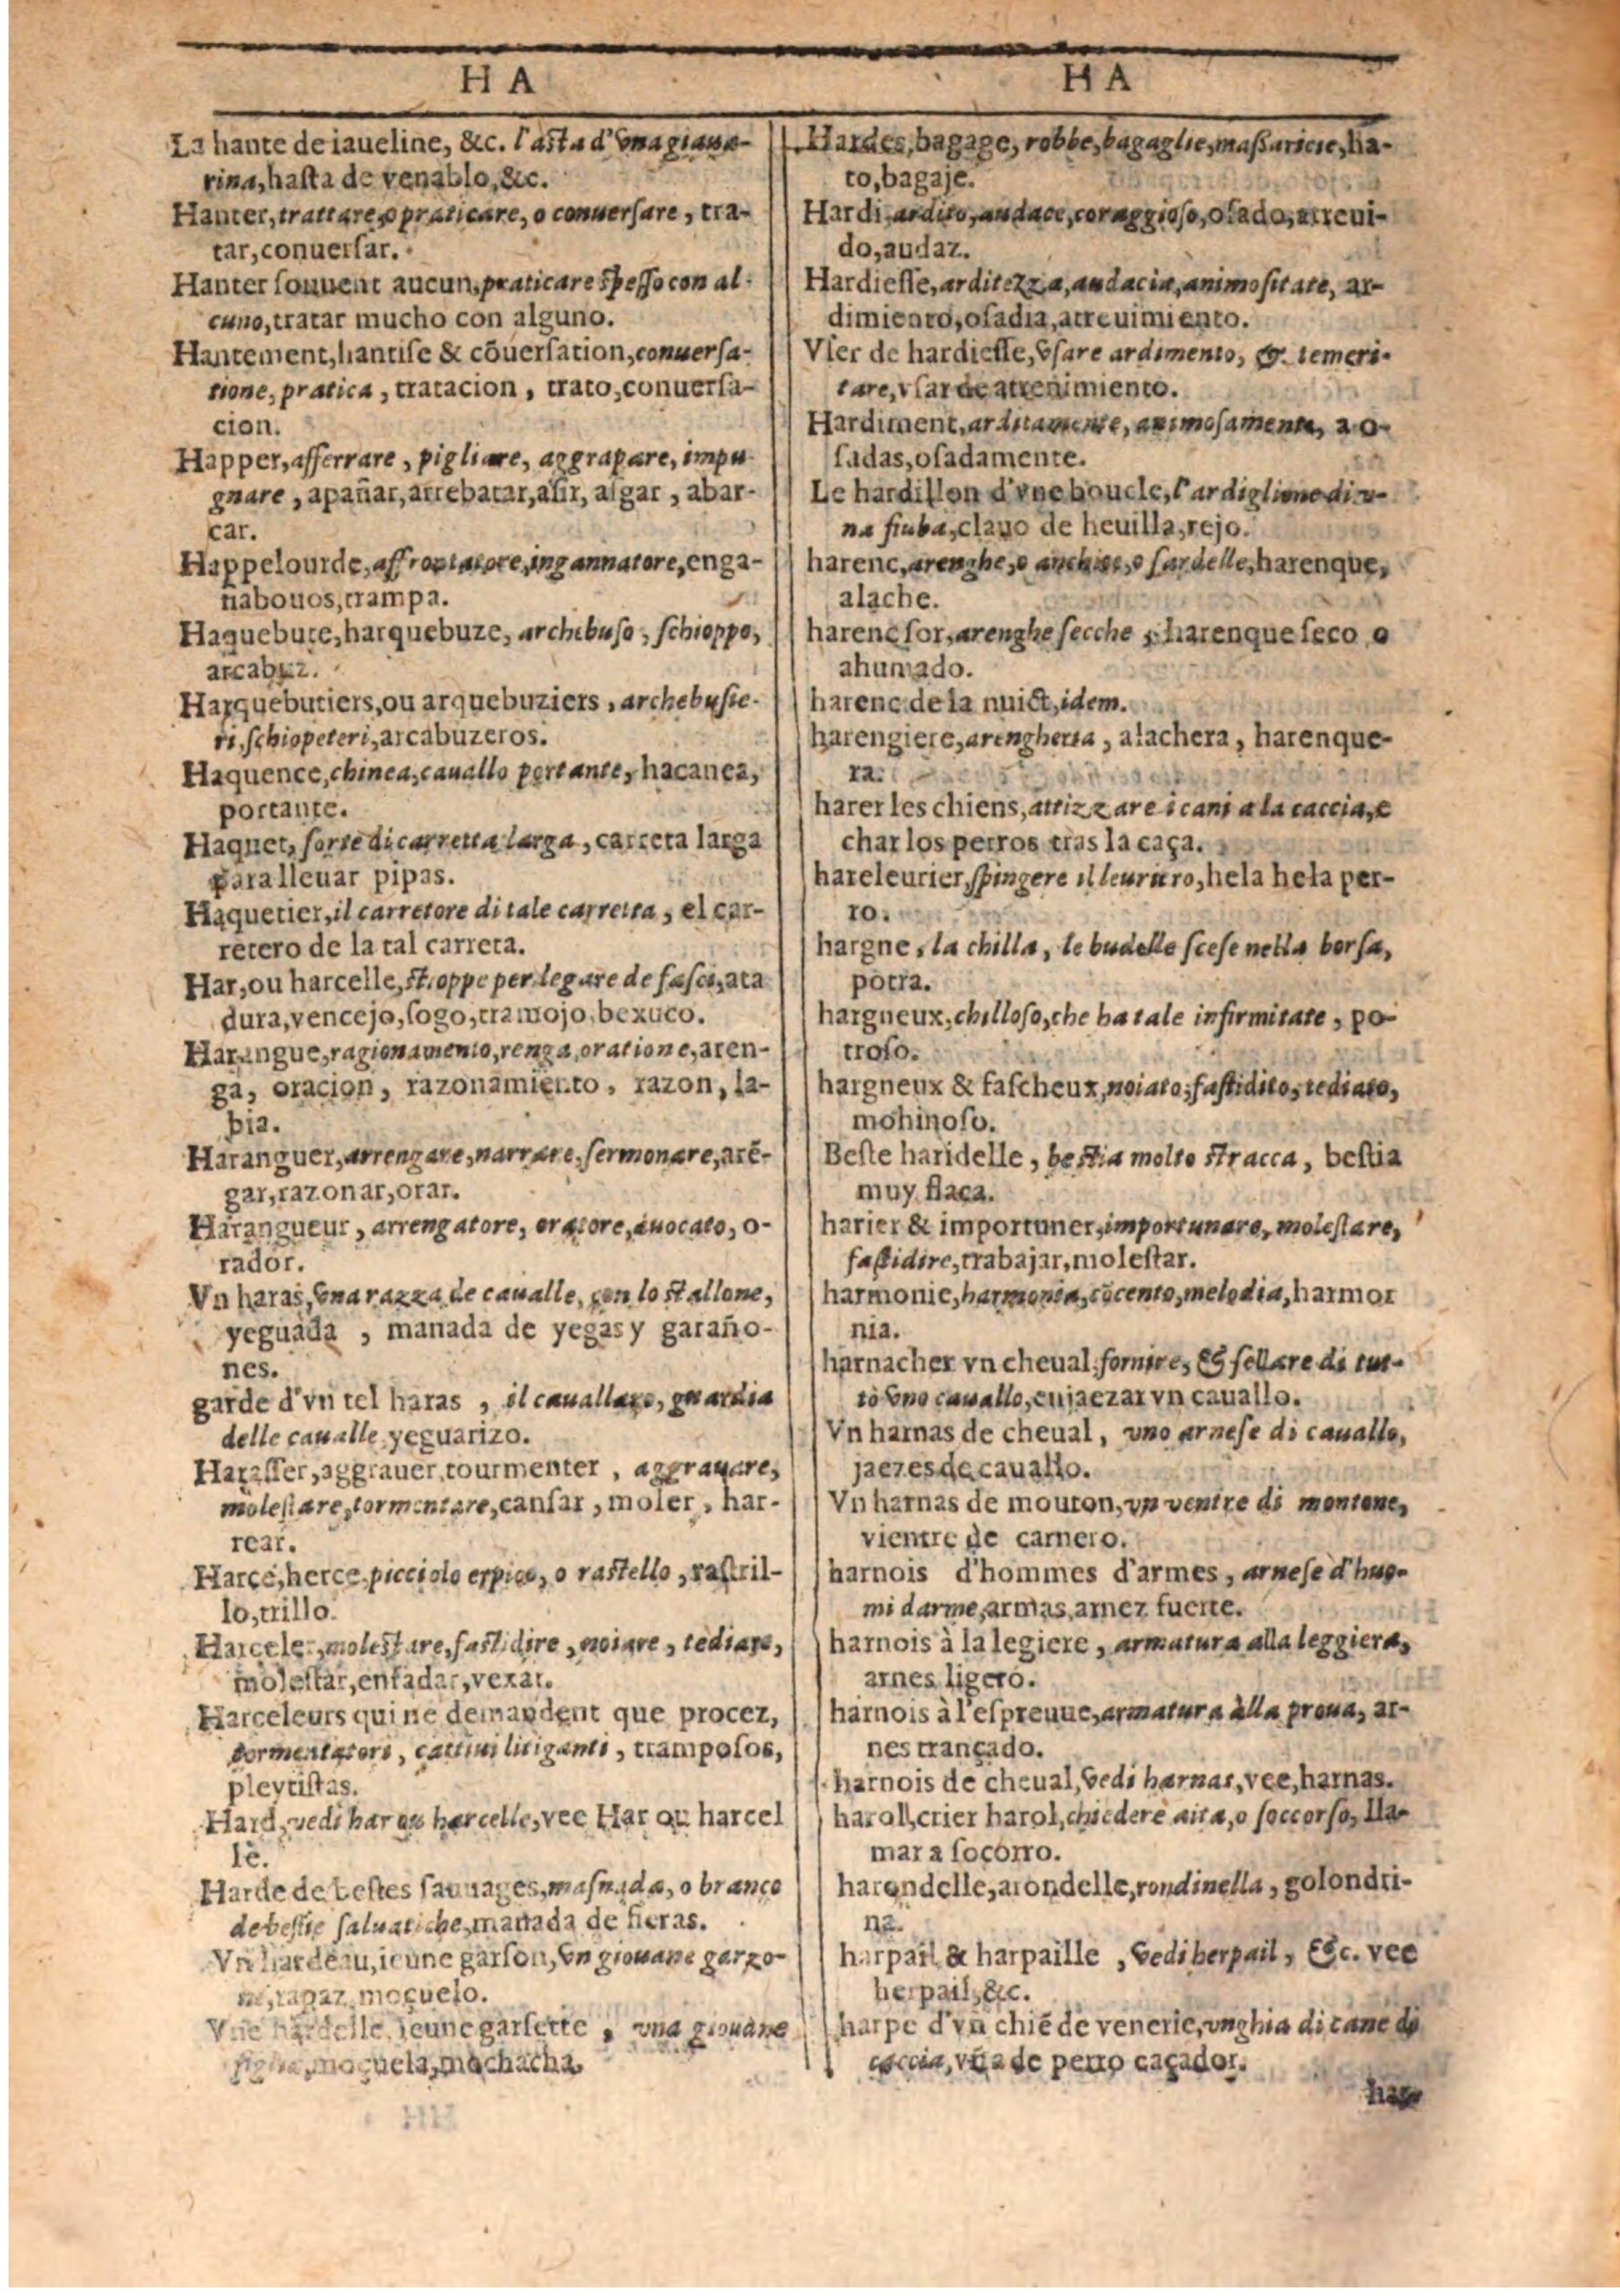 HA
La hante de iaueline, &c. l'asta d'vna giaue-
rina, hasta de venablo, &c.
Hanter, trattare, o praticare, o conuersare, tra-
tar, conuersar.
Hanter souuent aucun, praticare spesso con al-
cuno, tratar mucho con alguno.
Hantement, hantise & cõuersation, conuersa-
tione, pratica, tratacion, trato, conuersa-
cion.
Happer, afferrare, pigliare, aggrapare, impu-
gnare, apañar, arrebatar, asir, asgar, abar-
car.
Happelourde, affrontatore, ingannatore, enga-
ñabouos, trampa.
Haquebute, harquebuze, archibuso, schioppo,
arcabuz.
Harquebutiers, ou arquebuziers, archebusie-
ri, schiopeteri, arcabuzeros.
Haquence, chinea, cauallo portante, hacanea,
portante.
Haquet, sorte di carretta larga, carreta larga
para lleuar pipas.
Haquetier, il carretore di tale carretta, el car-
retero de la tal carreta.
Har, ou harcelle, stroppe per legare de fasci, ata
dura, vencejo, sogo, tramojo, bexuco.
Harangue, ragionamento, renga, oratione, aren-
ga, oracion, razonamiento, razon, la-
bia.
Haranguer, arrengare, narrare, sermonare, arẽ-
gar, razonar, orar.
Harangueur, arrengatore, oratore, auocato, o-
rador.
Vn haras, vna razza de caualle, con lo stallone,
yeguada, manada de yegas y garaño-
nes.
garde d'vn tel haras, il cauallaro, guardia
delle caualle, yeguarizo.
Harasser, aggrauer, tourmenter, aggrauare,
molestare, tormentare, cansar, moler, har-
rear.
Harce, herce, picciolo erpico, o rastello, rastril-
lo, trillo.
Harceler, molestare, fastidire, noiare, tediare,
molestar, enfadar, vexar.
Harceleurs qui ne demandent que procez,
tormentatori, cattiui litiganti, tramposos,
pleytistas.
Hard, vedi har ou harcelle, vee Har ou harcel
le.
Harde de bestes sauuages, masnada, o branco
de bestie saluatiche, manada de fieras.
Vn hardeau, ieune garson, vn giouane garzo-
ne, rapaz, moçuelo.
Vne hardelle, ieune garsette, vna giouane
figlia, moçuela, mochacha.
HA
Hardes, bagage, robbe, bagaglie, massaricie, ha-
to, bagaje.
Hardi, ardito, audace, coraggioso, osado, atreui-
do, audaz.
Hardiesse, arditezza, audacia, animositate, ar-
dimiento, osadia, atreuimiento.
Vser de hardiesse, vsare ardimento, & temeri-
tare, vsar de atreuimiento.
Hardiment, arditamente, animosamente, a o-
sadas, osadamente.
Le hardillon d'vne boucle, l'ardiglione di v-
na fiuba, clauo de heuilla, rejo.
harenc, arenghe, o anchioe, o sardelle, harenque,
alache.
harenc sor, arenghe secche, harenque seco o
ahumado.
harenc de la nuict, idem.
harengiere, arengheria, alachera, harenque-
ra.
harer les chiens, attizzare i cani a la caccia, e
char los perros tras la caça.
hareleurier, spingere il leuriero, hela hela per-
ro.
hargne, la chilla, le budelle scese nella borsa,
potra.
hargneux, chilloso, che ha tale infirmitate, po-
troso.
hargneux & fascheux, noiato, fastidito, tediato,
mohinoso.
Beste haridelle, bestia molto stracca, bestia
muy flaca.
harier & importuner, importunare, molestare,
fastidire, trabajar, molestar.
harmonie, harmonia, cõcento, melodia, harmor
nia.
harnacher vn cheual, fornire, & sellare di tut-
to vno cauallo, enjaezar vn cauallo.
Vn harnas de cheual, vno arnese di cauallo,
jaezes de cauallo.
Vn harnas de mouton, vn ventre di montone,
vientre de carnero.
harnois d'hommes d'armes, arnese d'huo-
mi darme, armas, arnez fuerte.
harnois à la legiere, armatura alla leggiera,
arnes ligero.
harnois à l'espreuue, armatura àlla proua, ar-
nes trançado.
harnois de cheual, vedi harnas, vee, harnas.
haroll, crier harol, chiedere aita, o soccorso, lla-
mar a socorro.
harondelle, arondelle, rondinella, golondri-
na.
harpail & harpaille, vedi herpail, &c. vee
herpail, &c.
harpe d'vn chiẽ de venerie, vnghia di cane di
caccia, vña de perro caçador.
har-